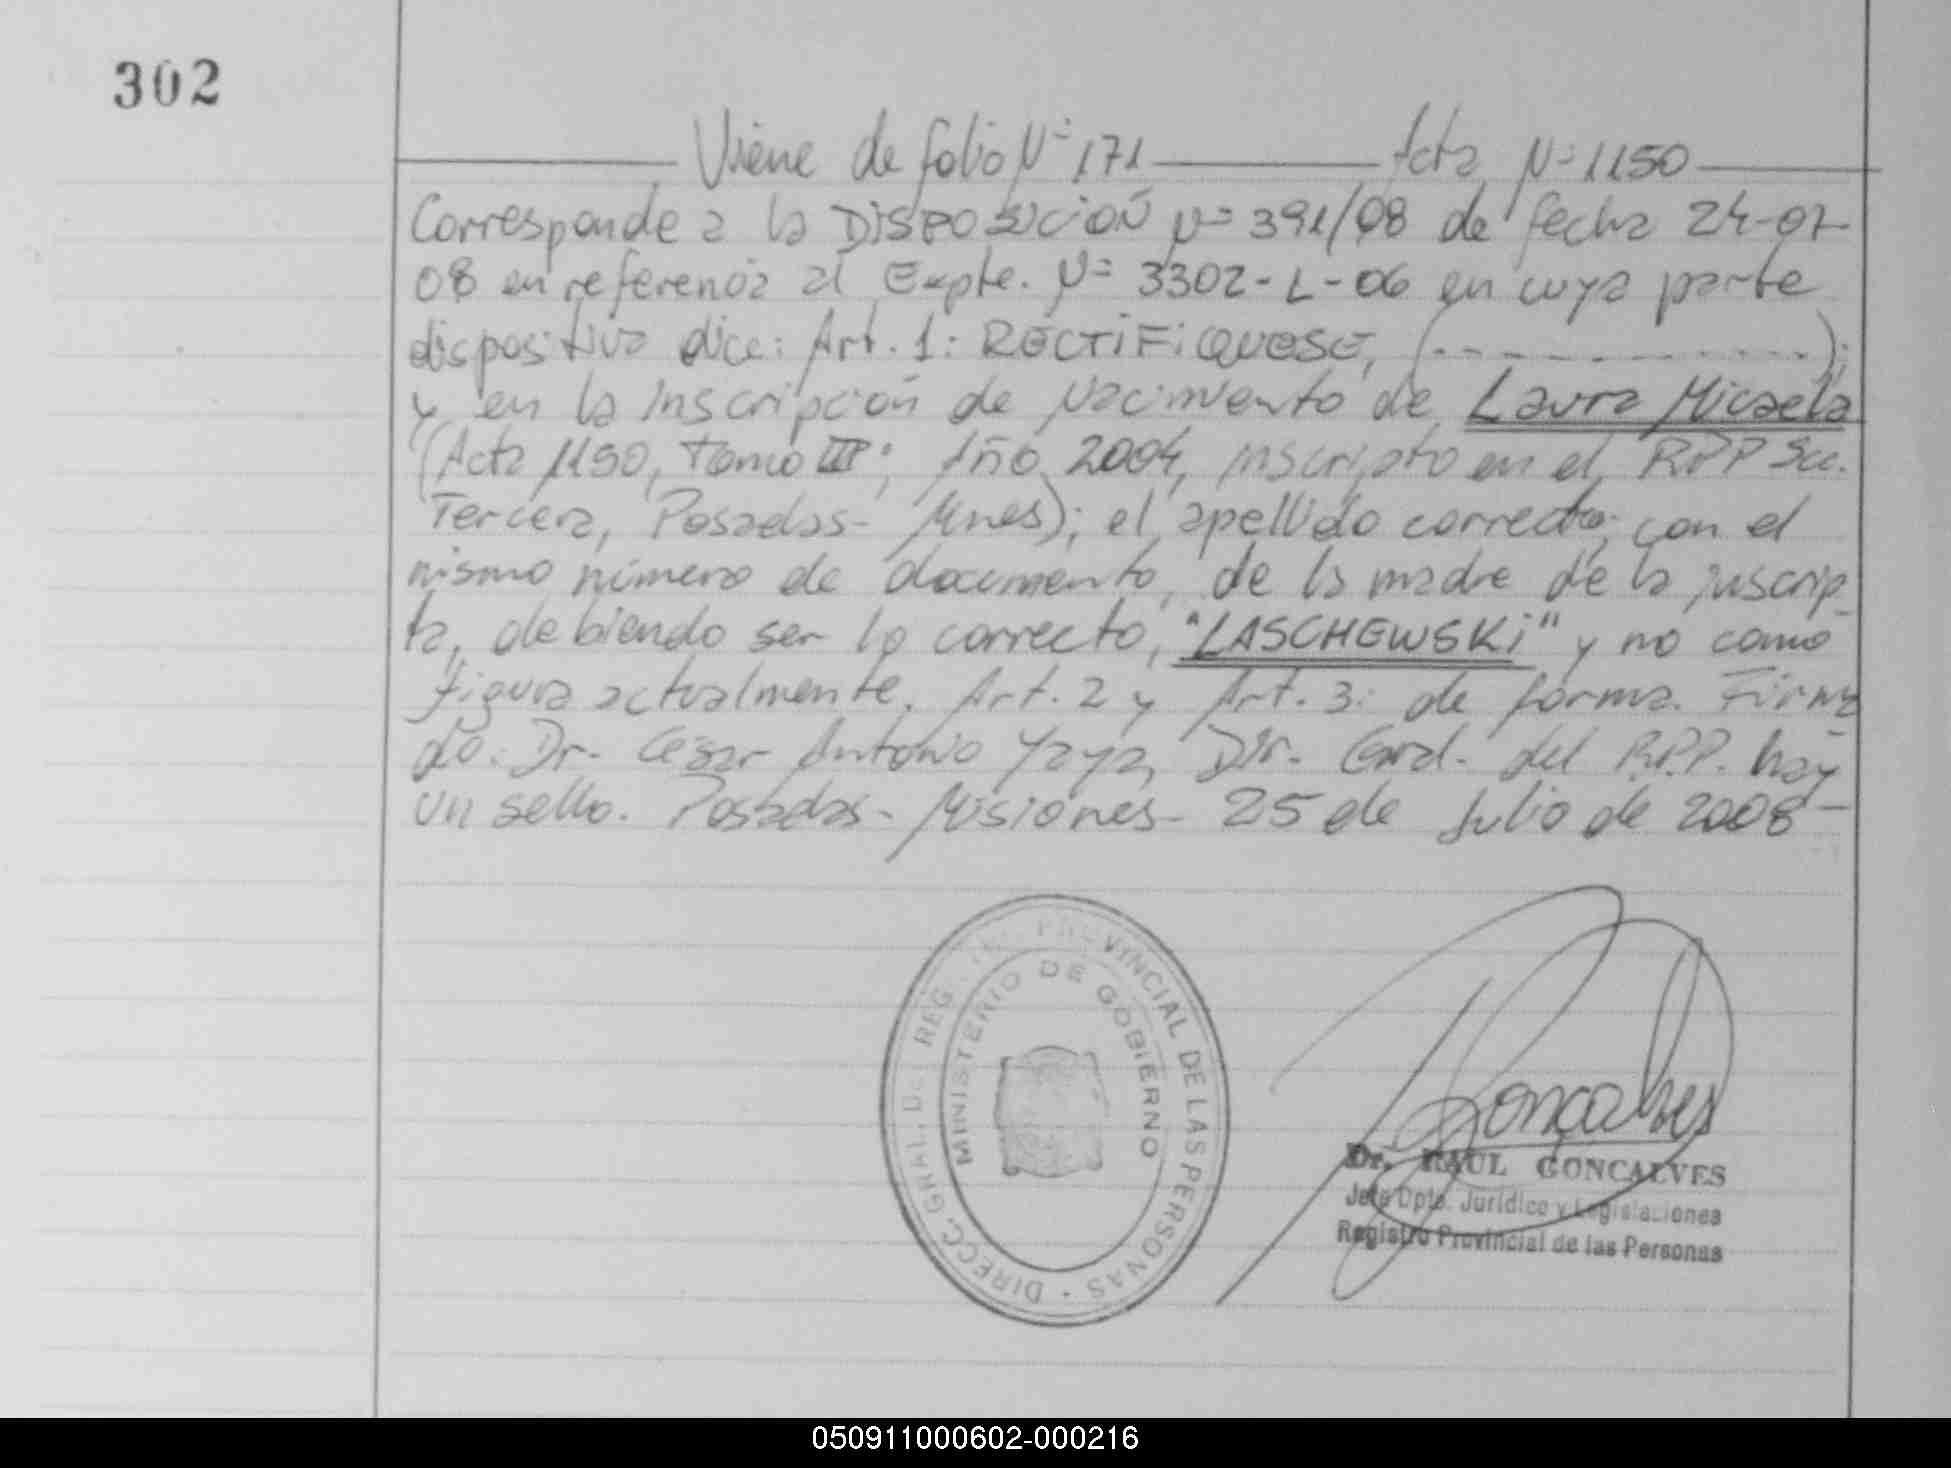 302
Viene de folio Nº 171 Acta Nº 1150
Corresponde a la DISPOSICIÓN Nº 391/08 de fecha 24-07-
08 en referencia al Expte. Nº 3302-L-06 en cuya parte
dispositiva dice: Art. 1: RECTIFIQUESE, (- - - - - - - - - - - -);
y en la inscripción de Nacimiento de Laura Micaela
(Acta 1150, Tomo III; Año 2004, inscripto en el RPP Sec.
Tercera, Posadas- Mnes); el apellido correcto, con el
mismo número de documento, de la madre de la inscrip-
ta, debiendo ser lo correcto, "LASCHEWSKI" y no como
figura actualmente. Art. 2 y Art. 3: de forma. Firma-
do: Dr. César Antonio Yaya, Dir. Gral. del R.P.P. hay
un sello. Posadas- Misiones- 25 de Julio de 2008-
DIRECC. GRAL. DEL REG. PROVINCIAL DE LAS PERSONAS
MINISTERIO DE GOBIERNO
Gonçalves
Dr. RAUL GONCALVES
Jefe Dpto. Jurídico y Legislaciones
Registro Provincial de las Personas
050911000602-000216